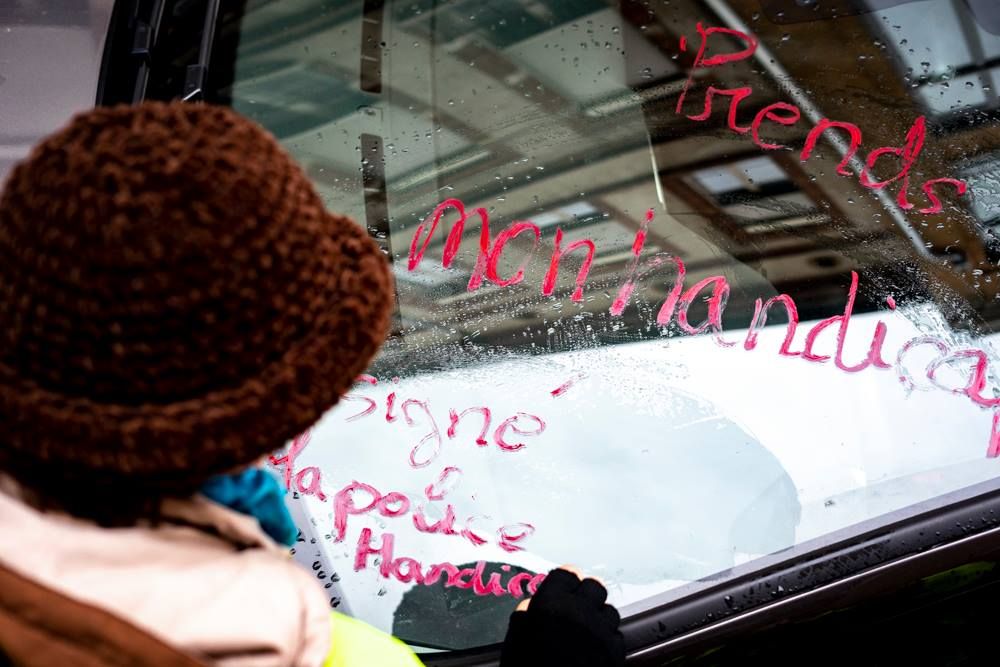 Prends
mon handicap
Signé
la police
Handica